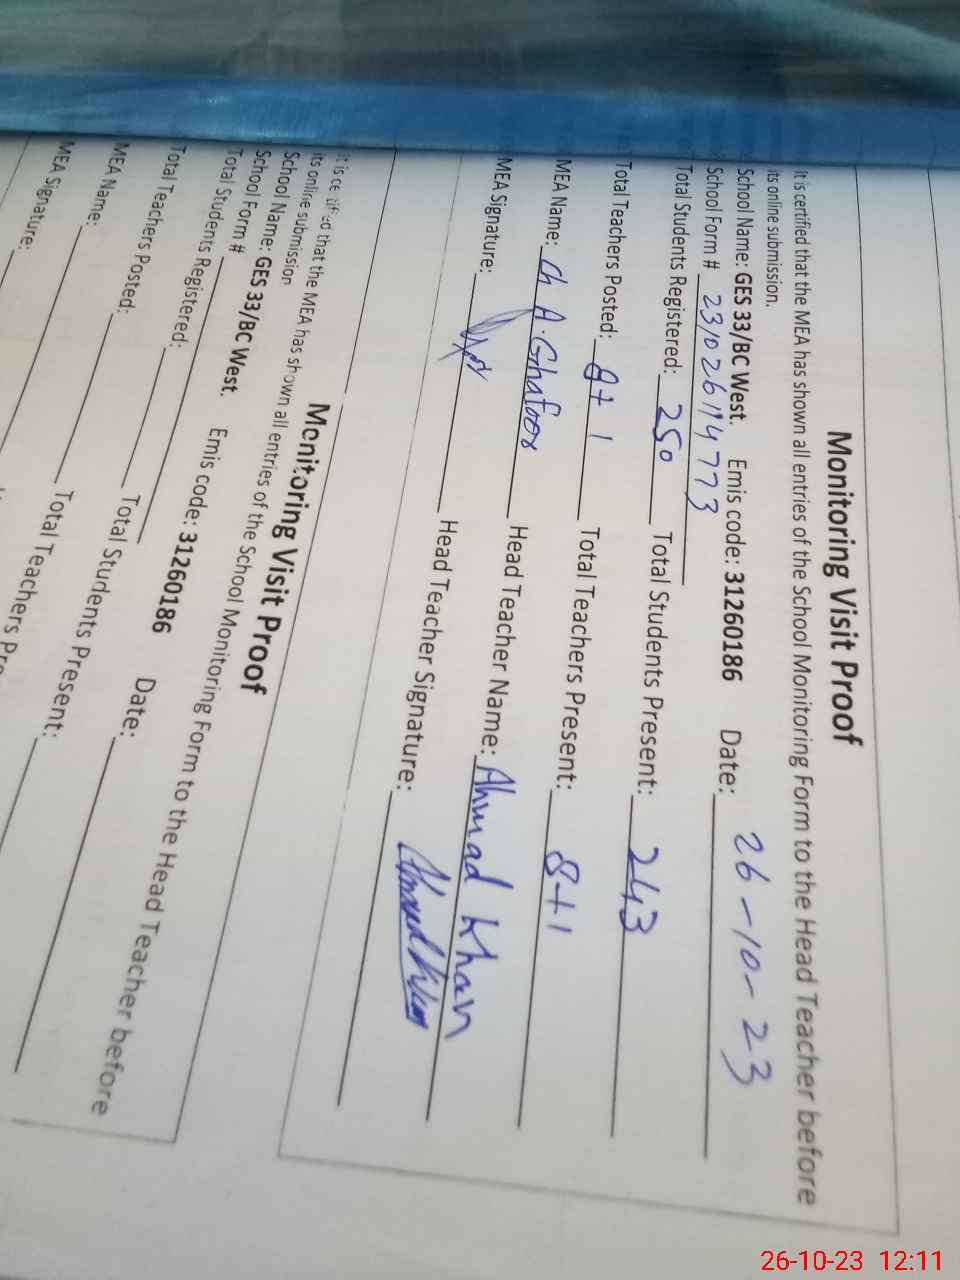 Monitoring Visit Proof
It is certified that the MEA has shown all entries of the School Monitoring Form to the Head Teacher before
its online submission.
School Name: GES 33/BC West. Emis code: 31260186 Date: 26-10-23
School Form # 231026114773
Total Students Registered: 250 Total Students Present: 243
Total Teachers Posted: 8+1 Total Teachers Present: 8+1
MEA Name: Ch A.Ghafoor Head Teacher Name: Ahmad Khan
MEA Signature: Head Teacher Signature: Ahmad Khan
Monitoring Visit Proof
It is certified that the MEA has shown all entries of the School Monitoring Form to the Head Teacher before
its online submission
School Name: GES 33/BC West. Emis code: 31260186 Date:
School Form #
Total Students Registered: Total Students Present:
Total Teachers Posted: Total Teachers Pre
MEA Name:
MEA Signature:
26-10-23 12:11